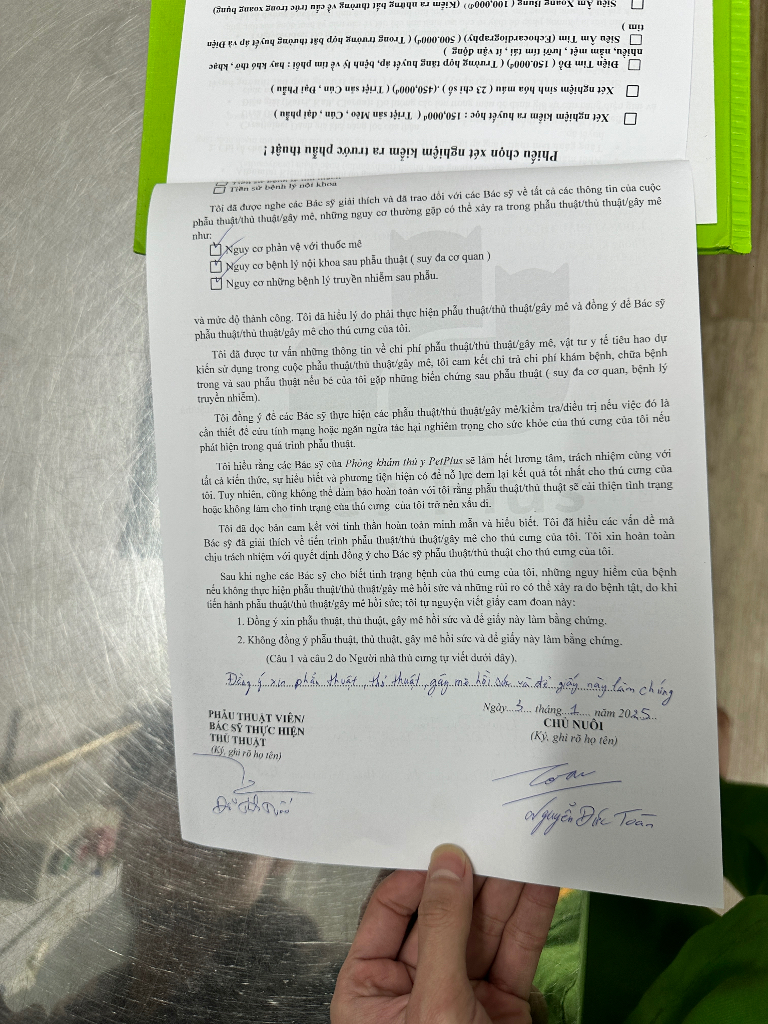 Siêu Âm Xoang Bụng ( 100,000ᵈ) (Kiểm ra những bất thường về cấu trúc trong xoang bụng)
tim )
Siêu Âm Tim (Echocardiography) ( 500.000ᵈ) ( Trong trường hợp bất thường huyết áp và Điện
nhiều, nằm mệt , lưỡi tím tái , ít vận động )
Điện Tim Đồ ( 150.000ᵈ) ( Trường hợp tăng huyết áp, bệnh lý về tim phổi : hay khó thở , khạc
Xét nghiệm sinh hóa máu ( 23 chỉ số ) .(450,000ᵈ) ( Triệt sản Cún , Đại Phẫu )
Xét nghiệm kiểm ra huyết học : 150,000ᵈ ( Triệt sản Mèo , Cún , đại phẫu )
Phiếu chọn xét nghiệm kiểm ra trước phẫu thuật !
Tiền sử bệnh lý nội khoa
Tôi đã được nghe các Bác sỹ giải thích và đã trao dổi với các Bác sỹ về tất cả các thông tin của cuộc
phẫu thuật/thủ thuật/gây mê, những nguy cơ thường gặp có thể xảy ra trong phẫu thuật/thủ thuật/gây mê
như:
Nguy cơ phản vệ với thuốc mê
Nguy cơ bệnh lý nội khoa sau phẫu thuật ( suy đa cơ quan )
Nguy cơ những bệnh lý truyền nhiễm sau phẫu.
và mức dộ thành công. Tôi đã hiểu lý do phải thực hiện phẫu thuật/thủ thuật/gây mê và đồng ý để Bác sỹ
phẫu thuật/thủ thuật/gây mê cho thú cưng của tôi.
Tôi đã được tư vấn những thông tin về chi phí phẫu thuật/thủ thuật/gây mê, vật tư y tế tiêu hao dự
kiến sử dụng trong cuộc phẫu thuật/thủ thuật/gây mê, tôi cam kết chi trả chi phí khám bệnh, chữa bệnh
trong và sau phẫu thuật nếu bé của tôi gặp những biến chứng sau phẫu thuật ( suy đa cơ quan, bệnh lý
truyền nhiễm).
Tôi đồng ý để các Bác sỹ thực hiện các phẫu thuật/thủ thuật/gây mê/kiểm tra/điều trị nếu việc đó là
cần thiết để cứu tính mạng hoặc ngăn ngừa tác hại nghiêm trọng cho sức khỏe của thú cưng của tôi nếu
phát hiện trong quá trình phẫu thuật.
Tôi hiểu rằng các Bác sỹ của Phòng khám thú y PetPlus sẽ làm hết lương tâm, trách nhiệm cùng với
tất cả kiến thức, sự hiểu biết và phương tiện hiện có để nỗ lực đem lại kết quả tốt nhất cho thú cưng của
tôi. Tuy nhiên, cũng không thể đảm bảo hoàn toàn với tôi rằng phẫu thuật/thủ thuật sẽ cải thiện tình trạng
hoặc không làm cho tình trạng của thú cưng của tôi trở nên xấu đi.
Tôi đã đọc bản cam kết với tinh thần hoàn toàn minh mẫn và hiểu biết. Tôi đã hiểu các vấn đề mà
Bác sỹ đã giải thích về tiến trình phẫu thuật/thủ thuật/gây mê cho thú cưng của tôi. Tôi xin hoàn toàn
chịu trách nhiệm với quyết định đồng ý cho Bác sỹ phẫu thuật/thủ thuật cho thú cưng của tôi.
Sau khi nghe các Bác sỹ cho biết tình trạng bệnh của thú cưng của tôi, những nguy hiểm của bệnh
nếu không thực hiện phẫu thuật/thủ thuật/gây mê hồi sức và những rủi ro có thể xảy ra do bệnh tật, do khi
tiến hành phẫu thuật/thủ thuật/gây mê hồi sức; tôi tự nguyện viết giấy cam đoan này:
1. Đồng ý xin phẫu thuật, thủ thuật, gây mê hồi sức và để giấy này làm bằng chứng.
2. Không đồng ý phẫu thuật, thủ thuật, gây mê hồi sức và để giấy này làm bằng chứng.
(Câu 1 và câu 2 do Người nhà thú cưng tự viết dưới đây).
Đồng ý xin phẩu thuật, thủ thuật, gây mê hồi sức và để giấy này làm chứng
Ngày 3 tháng 1 năm 2025
PHẪU THUẬT VIÊN/
BÁC SỸ THỰC HIỆN
THỦ THUẬT
(Ký, ghi rõ họ tên)
CHỦ NUÔI
(Ký, ghi rõ họ tên)
Toan
Nguyễn Đức Toàn